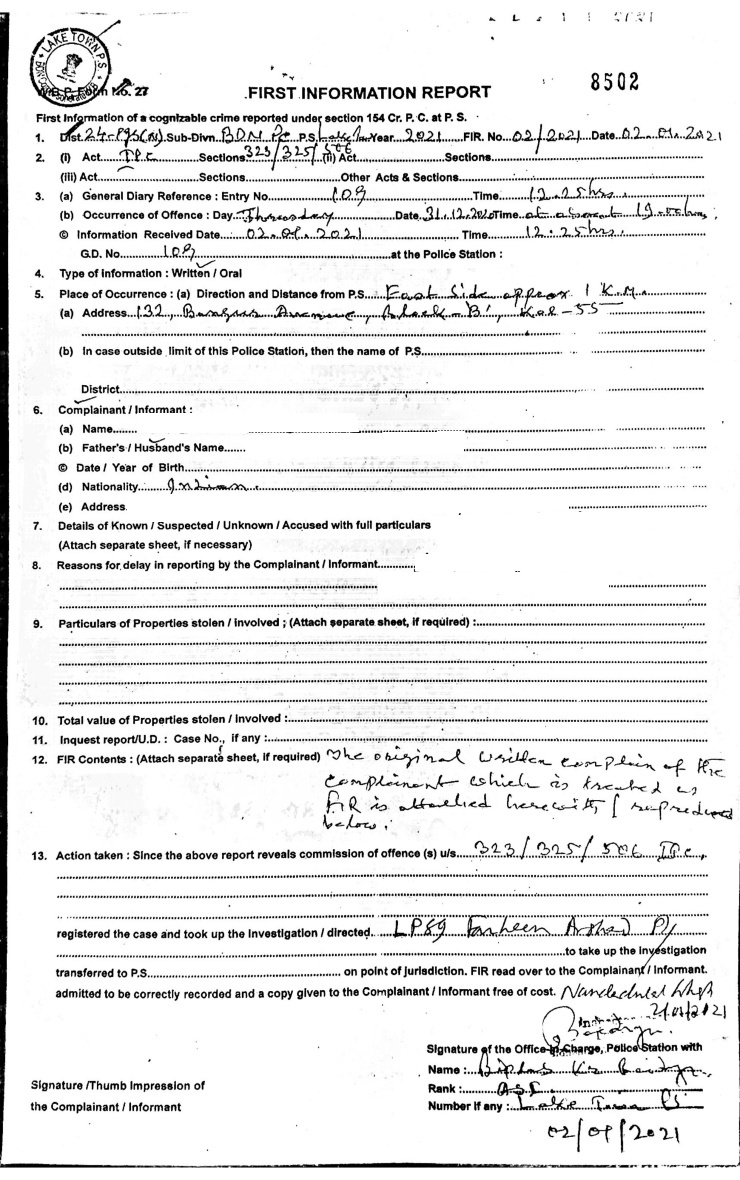 LAKE TOWN P.S.
W.B.P. Form No. 27
8502
FIRST INFORMATION REPORT
First Information of a cognizable crime reported under section 154 Cr. P. C. at P. S.
1. Dist. 24-Pgs(N) Sub-Divn. BDN PC P.S. Year 2021 FIR. No. 02/2021 Date 02.01.2021
2. (i) Act IPC Sections 323/325/506 (ii) Act Sections
(iii) Act Sections Other Acts & Sections
3. (a) General Diary Reference : Entry No. 109 Time 12.25 hrs.
(b) Occurrence of Offence : Day Thursday Date 31.12.2020 Time at about 19.00 hrs
© Information Received Date 02.01.2021 Time 12.25 hrs.
G.D. No. 109 at the Police Station :
4. Type of Information : Written / Oral
5. Place of Occurrence : (a) Direction and Distance from P.S. East Side approx 1 K.M.
(a) Address 132, Bangur Avenue, Block-'B', Kol-55
(b) In case outside limit of this Police Station, then the name of P.S.
District
6. Complainant / Informant :
(a) Name
(b) Father's / Husband's Name
© Date / Year of Birth
(d) Nationality Indian.
(e) Address
7. Details of Known / Suspected / Unknown / Accused with full particulars
(Attach separate sheet, if necessary)
8. Reasons for delay in reporting by the Complainant / Informant
9. Particulars of Properties stolen / involved ; (Attach separate sheet, if required) :
10. Total value of Properties stolen / Involved :
11. Inquest report/U.D. : Case No., if any :
12. FIR Contents : (Attach separate sheet, if required) The original written complain of the
complainant which is treated as
FIR is attached herewith / reproduced
below :
13. Action taken : Since the above report reveals commission of offence (s) u/s 323/325/506 IPC,
registered the case and took up the Investigation / directed LP89 Farheen Arshad
to take up the Investigation
transferred to P.S. on point of jurisdiction. FIR read over to the Complainant / Informant.
admitted to be correctly recorded and a copy given to the Complainant / Informant free of cost.
2/01/2021
Signature of the Office-in-Charge, Police Station with
Name :
Rank : ASI
Number if any : Lake Town PS
Signature /Thumb Impression of
the Complainant / Informant
02/01/2021